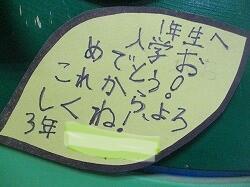 1年生へ
入学お
めでとう。
これから、よろ
しくね!
3年